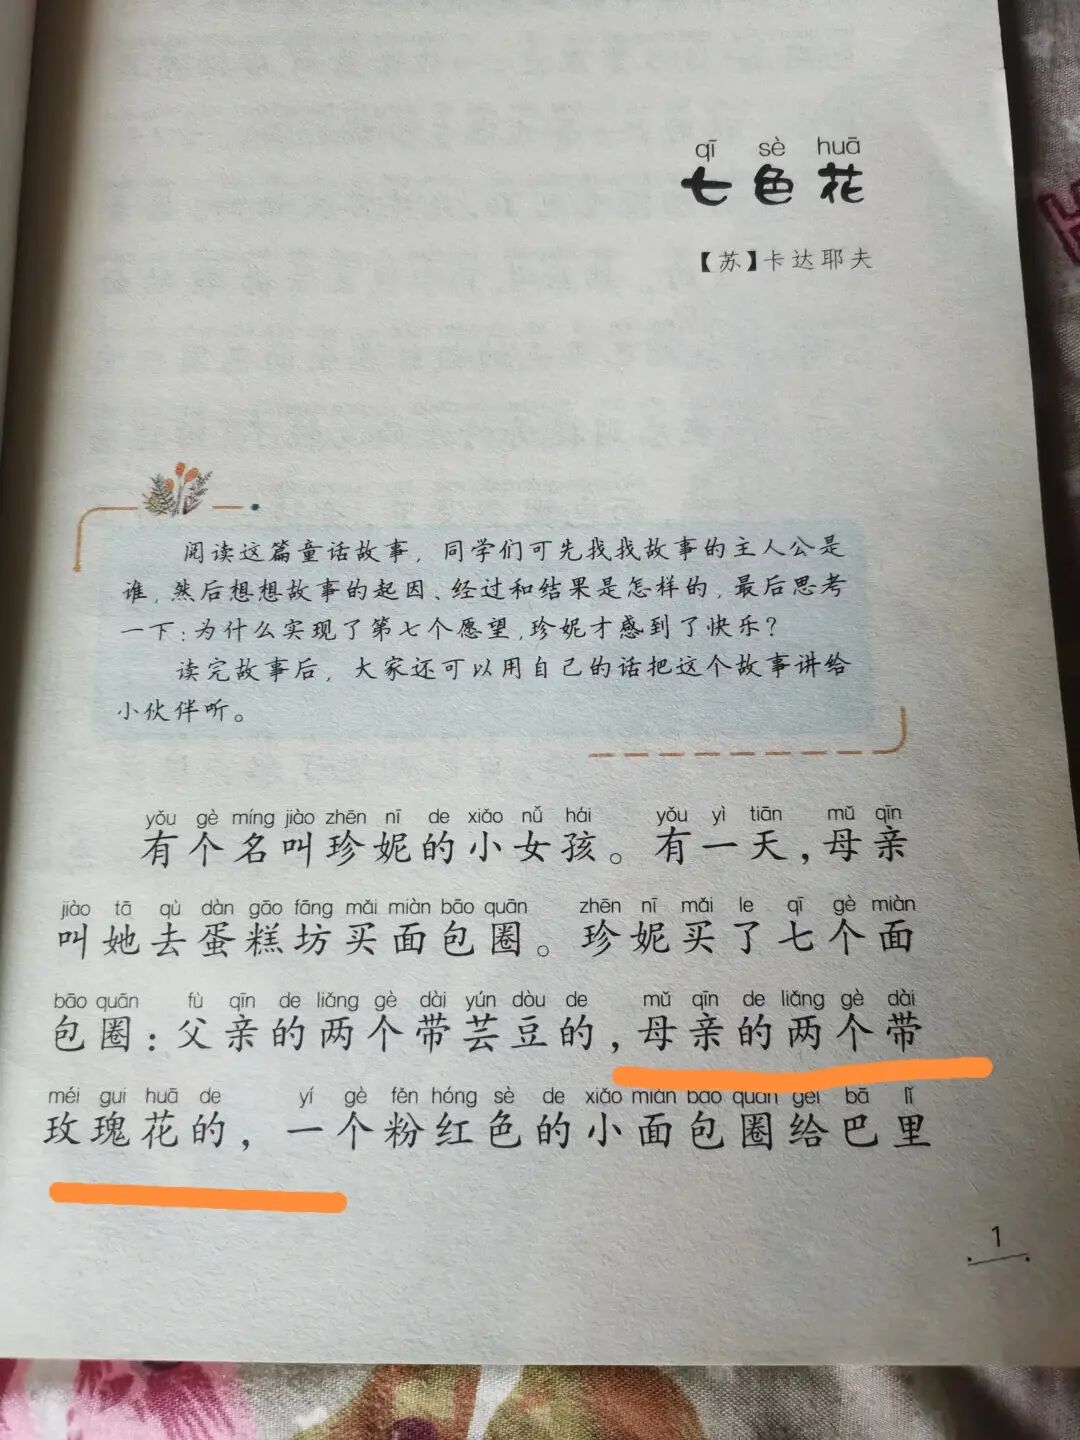 qī sè huā
七色花
【苏】卡达耶夫
阅读这篇童话故事，同学们可先找找故事的主人公是
谁，然后想想故事的起因、经过和结果是怎样的，最后思考
一下：为什么实现了第七个愿望，珍妮才感到了快乐？
读完故事后，大家还可以用自己的话把这个故事讲给
小伙伴听。
yǒu gè míng jiào zhēn nī de xiǎo nǚ hái yǒu yì tiān mǔ qīn
有个名叫珍妮的小女孩。有一天，母亲
jiào tā qù dàn gāo fāng mǎi miàn bāo quān zhēn nī mǎi le qī gè miàn
叫她去蛋糕坊买面包圈。珍妮买了七个面
bāo quān fù qīn de liǎng gè dài yún dòu de mǔ qīn de liǎng gè dài
包圈：父亲的两个带芸豆的，母亲的两个带
méi gui huā de yí gè fěn hóng sè de xiǎo miàn bāo quān gěi bā lǐ
玫瑰花的，一个粉红色的小面包圈给巴里
1